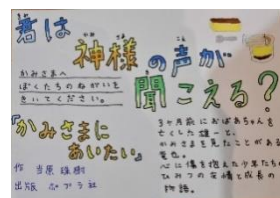 君は
神様の声が
聞こえる？
かみさまへ
ぼくたちのねがいを
きいてください。
『かみさまに
あいたい』
作 当原 雄樹
出版 ポプラ社
3ヶ月前におばあちゃんを
亡くした雄一と、
かみさまを見たことがある
竜也。
心に傷を抱えた少年たちの
ひみつの友情と成長の
物語。